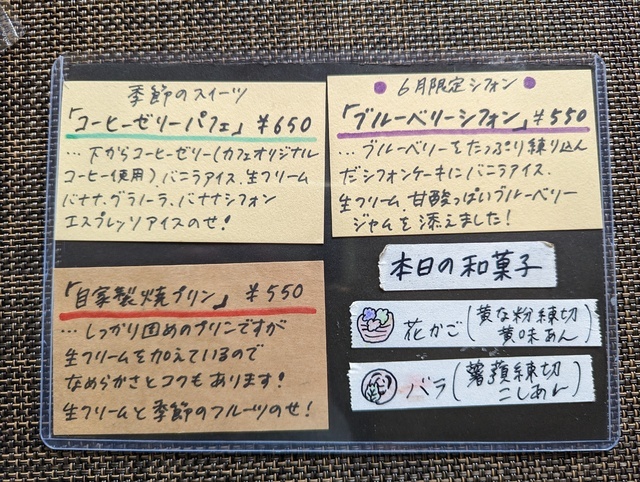 季節のスイーツ
「コーヒーゼリーパフェ」 ¥650
...下からコーヒーゼリー(カフェオリジナル
コーヒー使用)、バニラアイス、生クリーム
バナナ、グラノーラ、バナナシフォン
エスプレッソアイスのせ!
● 6月限定シフォン ●
「ブルーベリーシフォン」¥550
...ブルーベリーをたっぷり練り込ん
だシフォンケーキにバニラアイス、
生クリーム、甘酸っぱいブルーベリー
ジャムを添えました!
「自家製焼プリン」 ¥550
...しっかり固めのプリンですが
生クリームを加えているので
なめらかさとコクもあります!
生クリームと季節のフルーツのせ!
本日の和菓子
花かご(黄な粉練切
黄味あん)
バラ(薯蕷練切
こしあん)